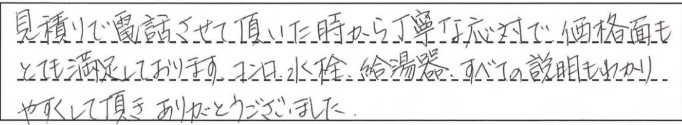 見積りで電話させて頂いた時から丁寧な応対で、価格面も
とても満足しております。コンロ、水栓、給湯器、すべての説明もわかり
やすくして頂きありがとうございました。